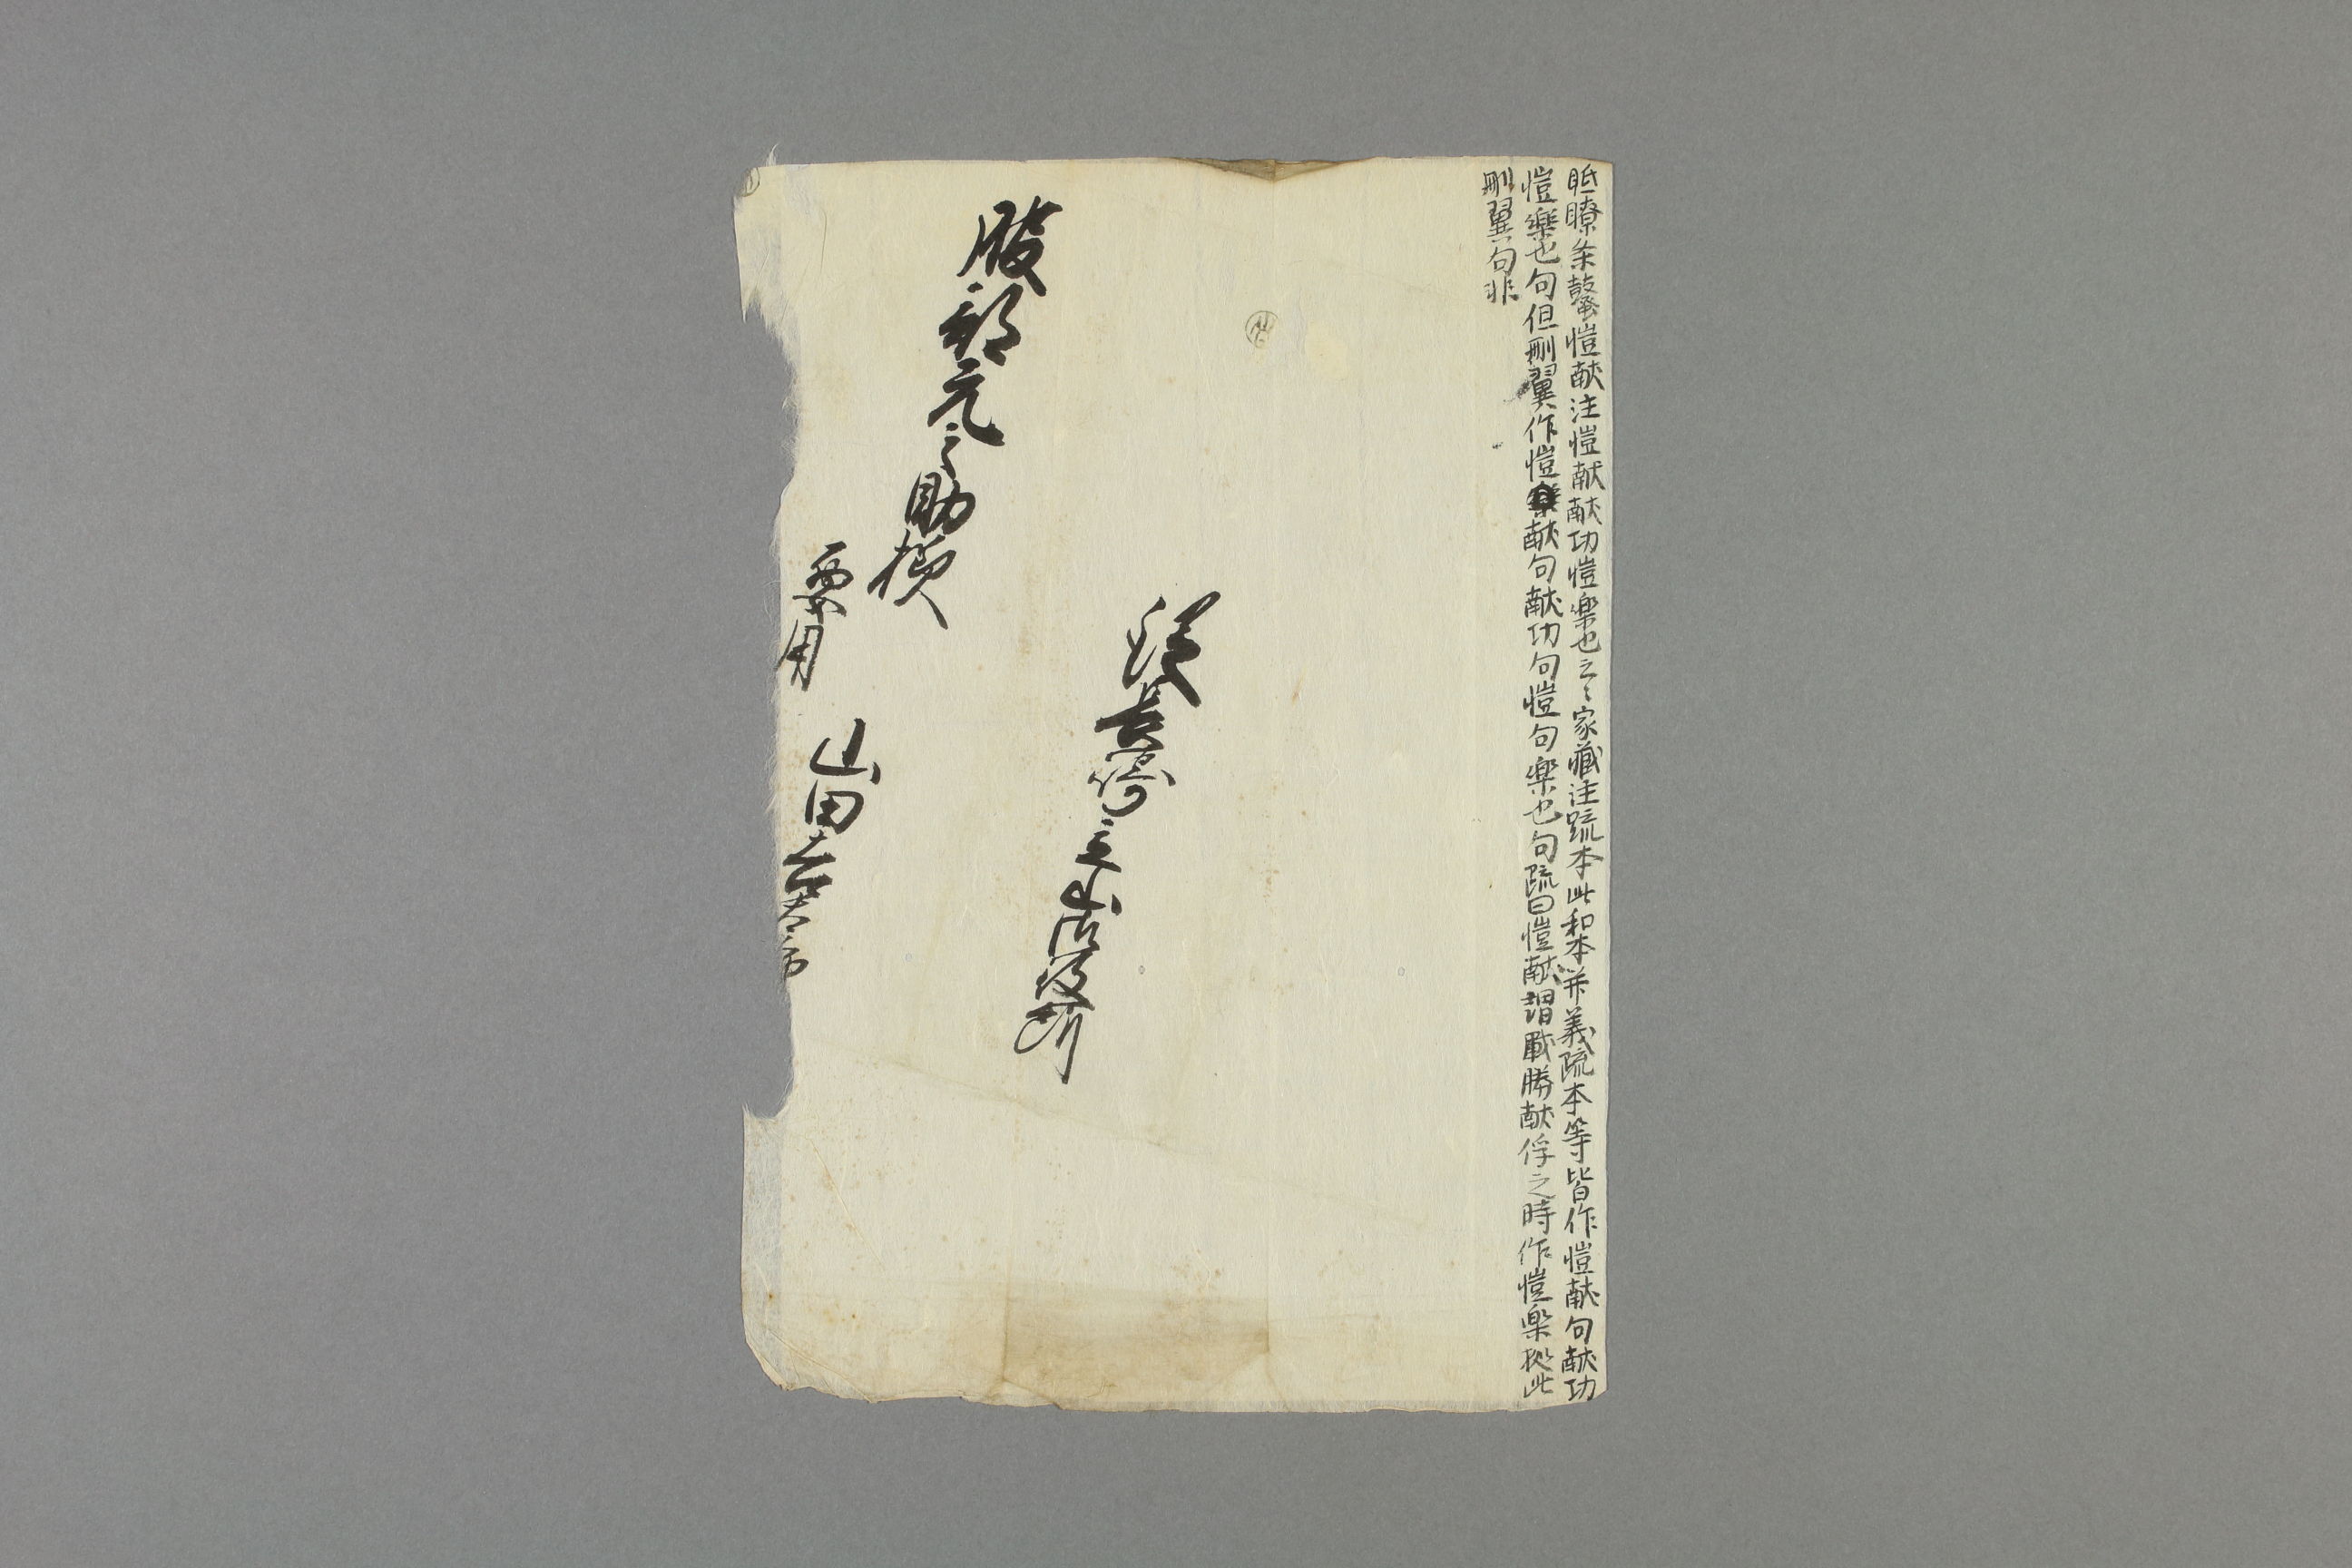 眂瞭条鼛愷献注愷献献功愷楽也云〻家蔵注疏本此和本并義疏本等皆作愷献句献功
愷楽也句但刪翼作愷献句献功句愷句楽也句疏曰愷献謂戦勝献俘之時作愷楽拠此
刪翼句非
山御役所
服部元之助様
要用 山田